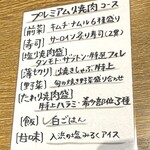 プレミアム焼肉コース
[前菜] キムチ ナムル6種盛り
[寿司] サーロイン炙り寿司(2貫)
[塩焼肉盛]
タンモト・ザブトン・特選
[薄切り] 焼きしゃぶ 特上
[野菜] 旬の焼き野菜盛り合せ
[たれ焼肉盛]
特上ハラミ・希少部位3種
[飯] 白ごはん
[甘味] 入浜の塩みるくアイス